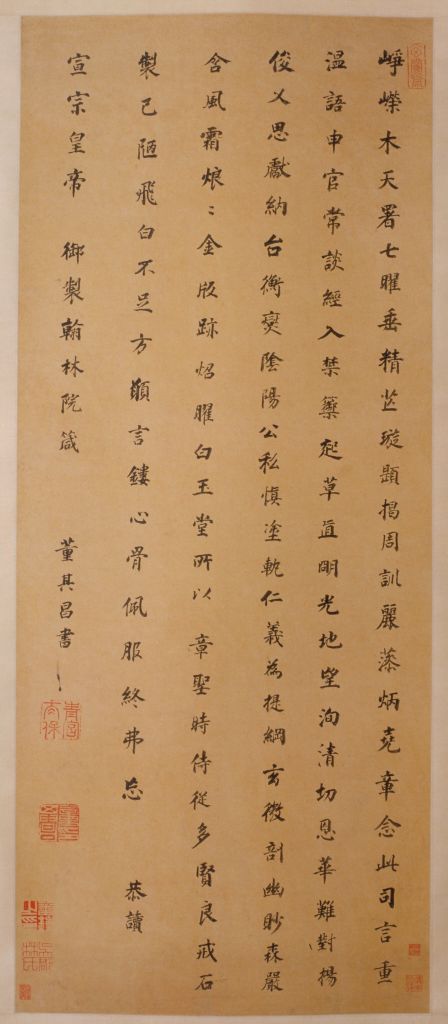 崢嶸木天署七曜垂精芒璇題揭周訓麗藻炳堯章念此司言重
溫語申官常談經入禁籞起草直明光地望洵清切恩華難對揚
俊乂思獻納台衡爕陰陽公私慎塗軌仁義為提綱玄微剖幽眇森嚴
含風霜烺〻金版跡焰曜白玉堂所以章聖時侍從多賢良戒石
製已陋飛白不足方願言鏤心骨佩服終弗忘 恭讀
宣宗皇帝 御製翰林院箴
董其昌書